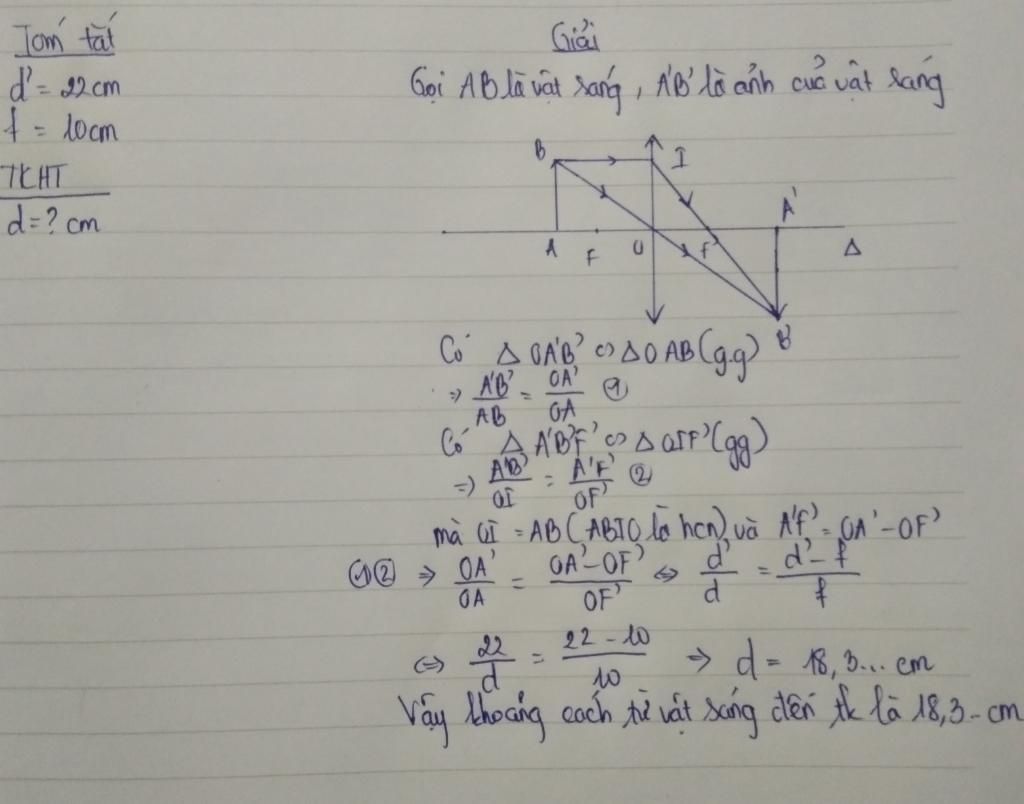 Tóm tắt
d' = 22 cm
f = 10cm
TKHT
d = ? cm
Giải
Gọi AB là vật sáng, A'B' là ảnh của vật sáng
B I A'
A F O F' Δ
B'
Có Δ OA'B' ∽ Δ OAB (g.g)
=> A'B'/AB = OA'/OA ①
Có Δ A'B'F' ∽ Δ OIF' (gg)
=> A'B'/OI = A'F'/OF' ②
mà OI = AB (ABIO là hcn) và A'F' = OA' - OF'
①② => OA'/OA = OA' - OF'/OF' <=> d'/d = d' - f/f
<=> 22/d = 22 - 10/10 => d = 18,3... cm
Vậy khoảng cách từ vật sáng đến tk là 18,3 - cm